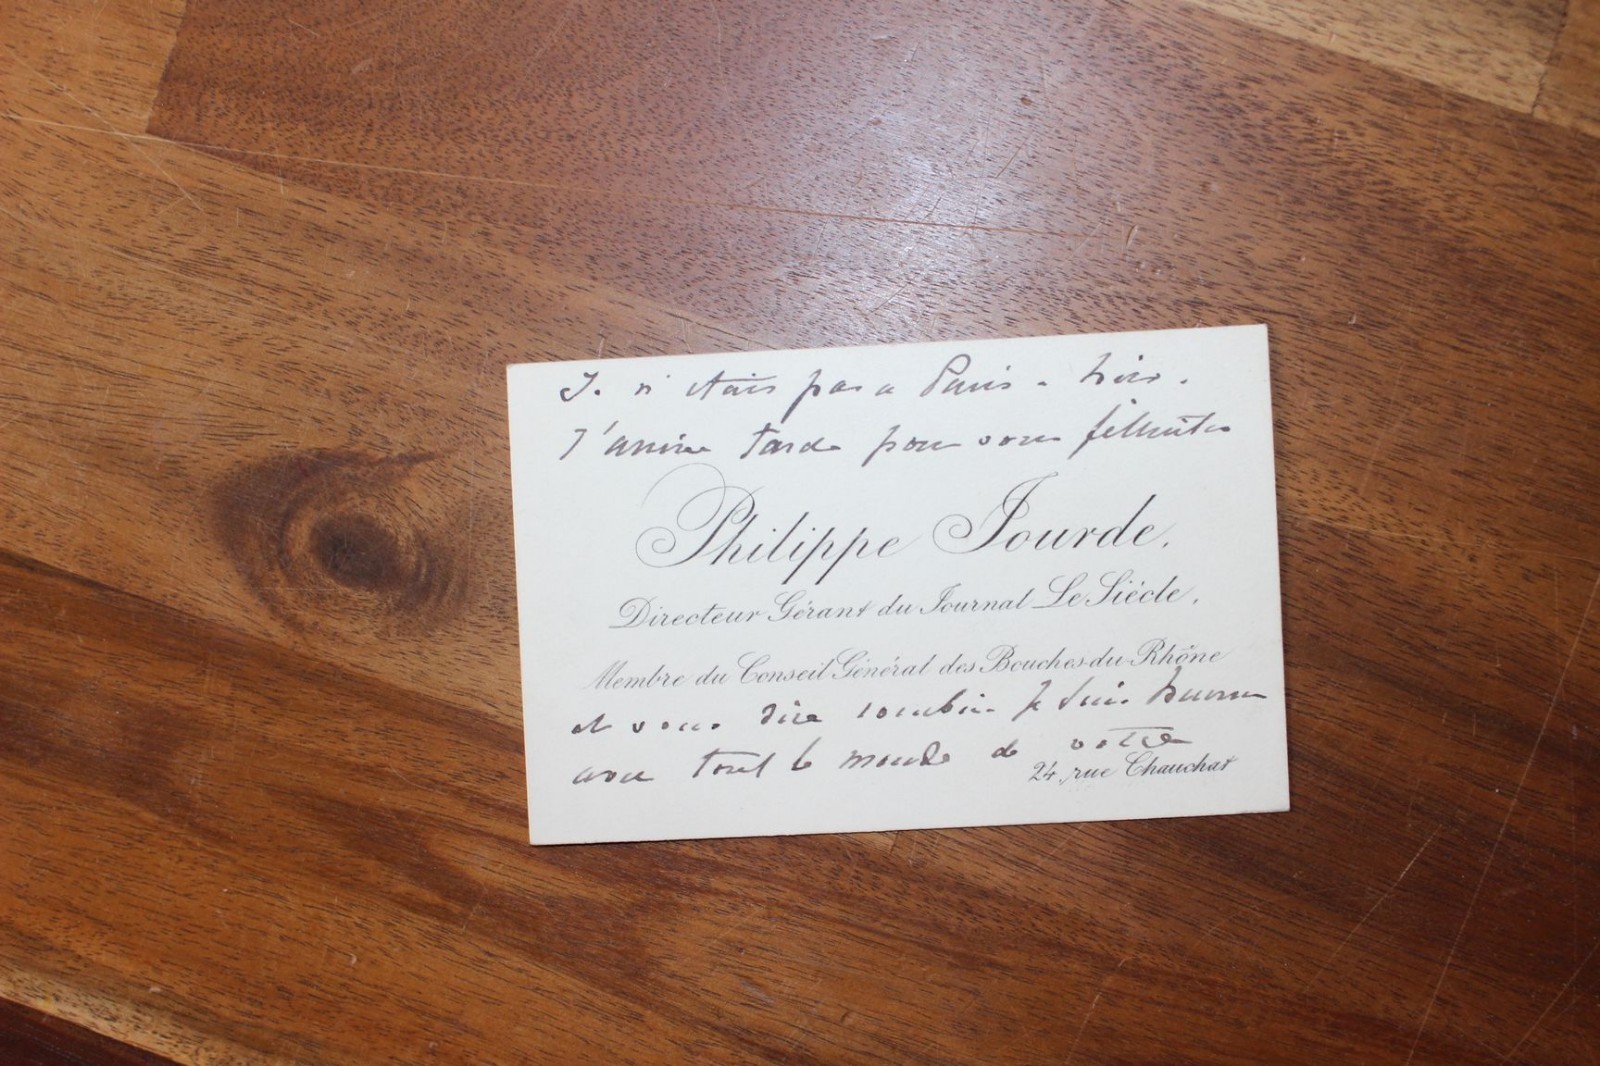 Je n'étais pas a Paris - hier.
J'arrive tard pour vous féliciter
Philippe Jourde.
Directeur Gérant du Journal Le Siècle.
Membre du Conseil Général des Bouches-du-Rhône
et vous dire combien je suis heureux
avec tout le monde de votre
24, rue Chauchat